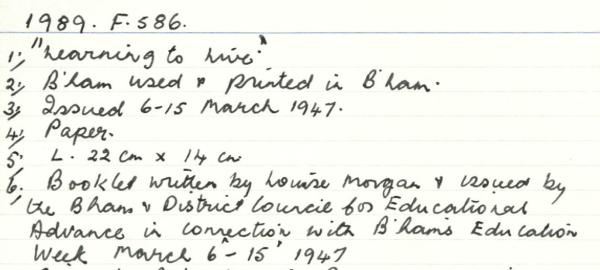 1989. F. 586.
1; "Learning to Live"
2; B'ham used & printed in B'ham.
3; Issued 6-15 March 1947.
4; Paper.
5; L. 22 cm x 14 cm
6. Booklet written by Louise Morgan & issued by
the Bham & District Council for Educational
Advance in connection with B'hams Education
Week March 6-15 1947